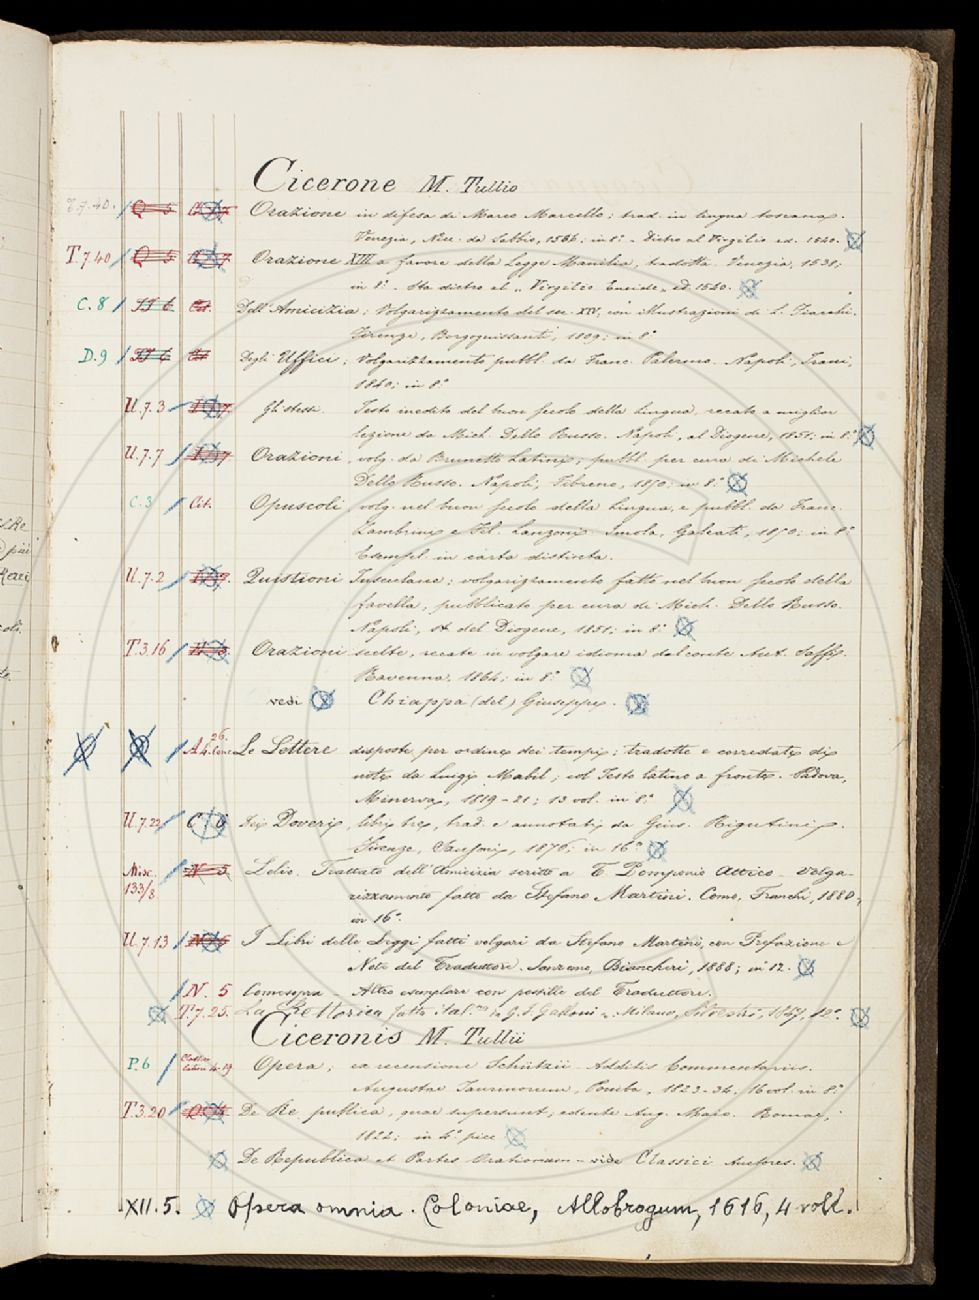 Cicerone M. Tullio
T.7.40. Q 5 Orazione in difesa di Marco Marcello; trad. in lingua toscana.
Venezia, Nic. da Sabbio, 1536; in 8.° - Dietro al Virgilio ed. 1540.
T.7.40 Q 5 Orazione XIII a favore della Legge Manilia, tradotta. Venezia, 1531;
in 8.° - Sta dietro al „Virgilio Eneide„ ed. 1540.
C.8 II 6 Cit. Dell'Amicizia; Volgarizzamento del sec. XIV, con illustrazioni di L.
Firenze, Borgognissanti, 1809; in 8.°
D.9 II 6 Degli Uffici; Volgarizzamento pubbl. da Franc. Palermo. Napoli, Trani,
1840; in 8.°
U.7.3 Gli stessi. Testo inedito del buon secolo della lingua, recato a miglior
lezione da Mich. Dello Russo. Napoli, al Diogene, 1851; in 8.°
U.7.7 Orazioni volg. da Brunetto Latini; pubbl. per cura di Michele
Dello Russo. Napoli, Fibreno, 1850; in 8.°
C.3 Cit. Opuscoli volg. nel buon secolo della lingua, e pubbl. da Franc.
Zambrini e Fil. Lanzoni. Imola, Galeati, 1850; in 8.°
Esempl. in carta distinta.
U.7.2 Quistioni Tusculane; volgarizzamento fatto nel buon secolo della
favella, pubblicato per cura di Mich. Dello Russo.
Napoli, st. del Diogene, 1851; in 8.°
T.3.16 Orazioni scelte, recate in volgare idioma dal conte Aut.
Ravenna, 1864; in 8.°
vedi Chiappa (del) Giuseppe.
26.
A Le Lettere disposte per ordine dei tempi; tradotte e corredate di
note da Luigi Mabil; col Testo latino a fronte. Padova,
Minerva, 1819-21; 13 vol. in 8.°
U.7.22 Dei Doveri, libri tre, trad. e annotati da Gius. Rigutini.
Firenze, Sansoni, 1876; in 16.°
Misc. 133/8 N 5 Lelio. Trattato dell'Amicizia scritto a T. Pomponio Attico - Volga-
rizzamento fatto da Stefano Martini. Como, Franchi, 1880;
in 16.°
U.7.13 I Libri delle Leggi fatti volgari da Stefano Martini, con Prefazione e
Note del Traduttore. Sanremo, Biancheri, 1888; in 12.
N. 5 Comesopra Altro esemplare con postille del Traduttore.
T.7.25. La Rettorica fatta ital.na da G. F. Galeoni. Milano, Silvestri, 1847, 12.°
Ciceronis M. Tullii
P.6 Classici latini Opera; ex recensione Schützii. Additis Commentariis.
Augustae Taurinorum, Pomba, 1823-34. 16 vol. in 8.°
T.3.20 De Re publica, quae supersunt; edente Aug. Majo. Romae,
1822; in 4.° picc.
De Republica et Partes Orationum - vide Classici Auctores.
XII.5. Opera omnia. Coloniae, Allobrogum, 1616, 4 voll.